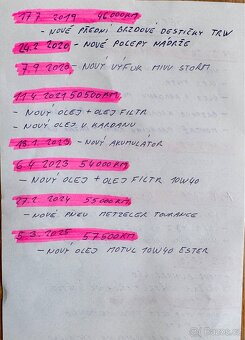 17.7 2019 46000KM
- NOVÉ PŘEDNÍ BRZDOVÉ DESTIČKY TRW
24.2 2020 - NOVÉ POLEPY NÁDRŽE
7.9 2020 - NOVÝ VÝFUK MIVV STORM
11.4 2021 50500KM
- NOVÝ OLEJ + OLEJ FILTR
- NOVÝ OLEJ V KARDANU
18.1 2023 - NOVÝ AKUMULÁTOR
6.4 2023 54000KM
- NOVÝ OLEJ + OLEJ FILTR 10W40
27.2 2024 55000KM
- NOVÉ PNEU METZELER TOURANCE
5.3. 2025 57500KM
- NOVÝ OLEJ MOTUL 10W40 ESTER
Sbazoš.cz